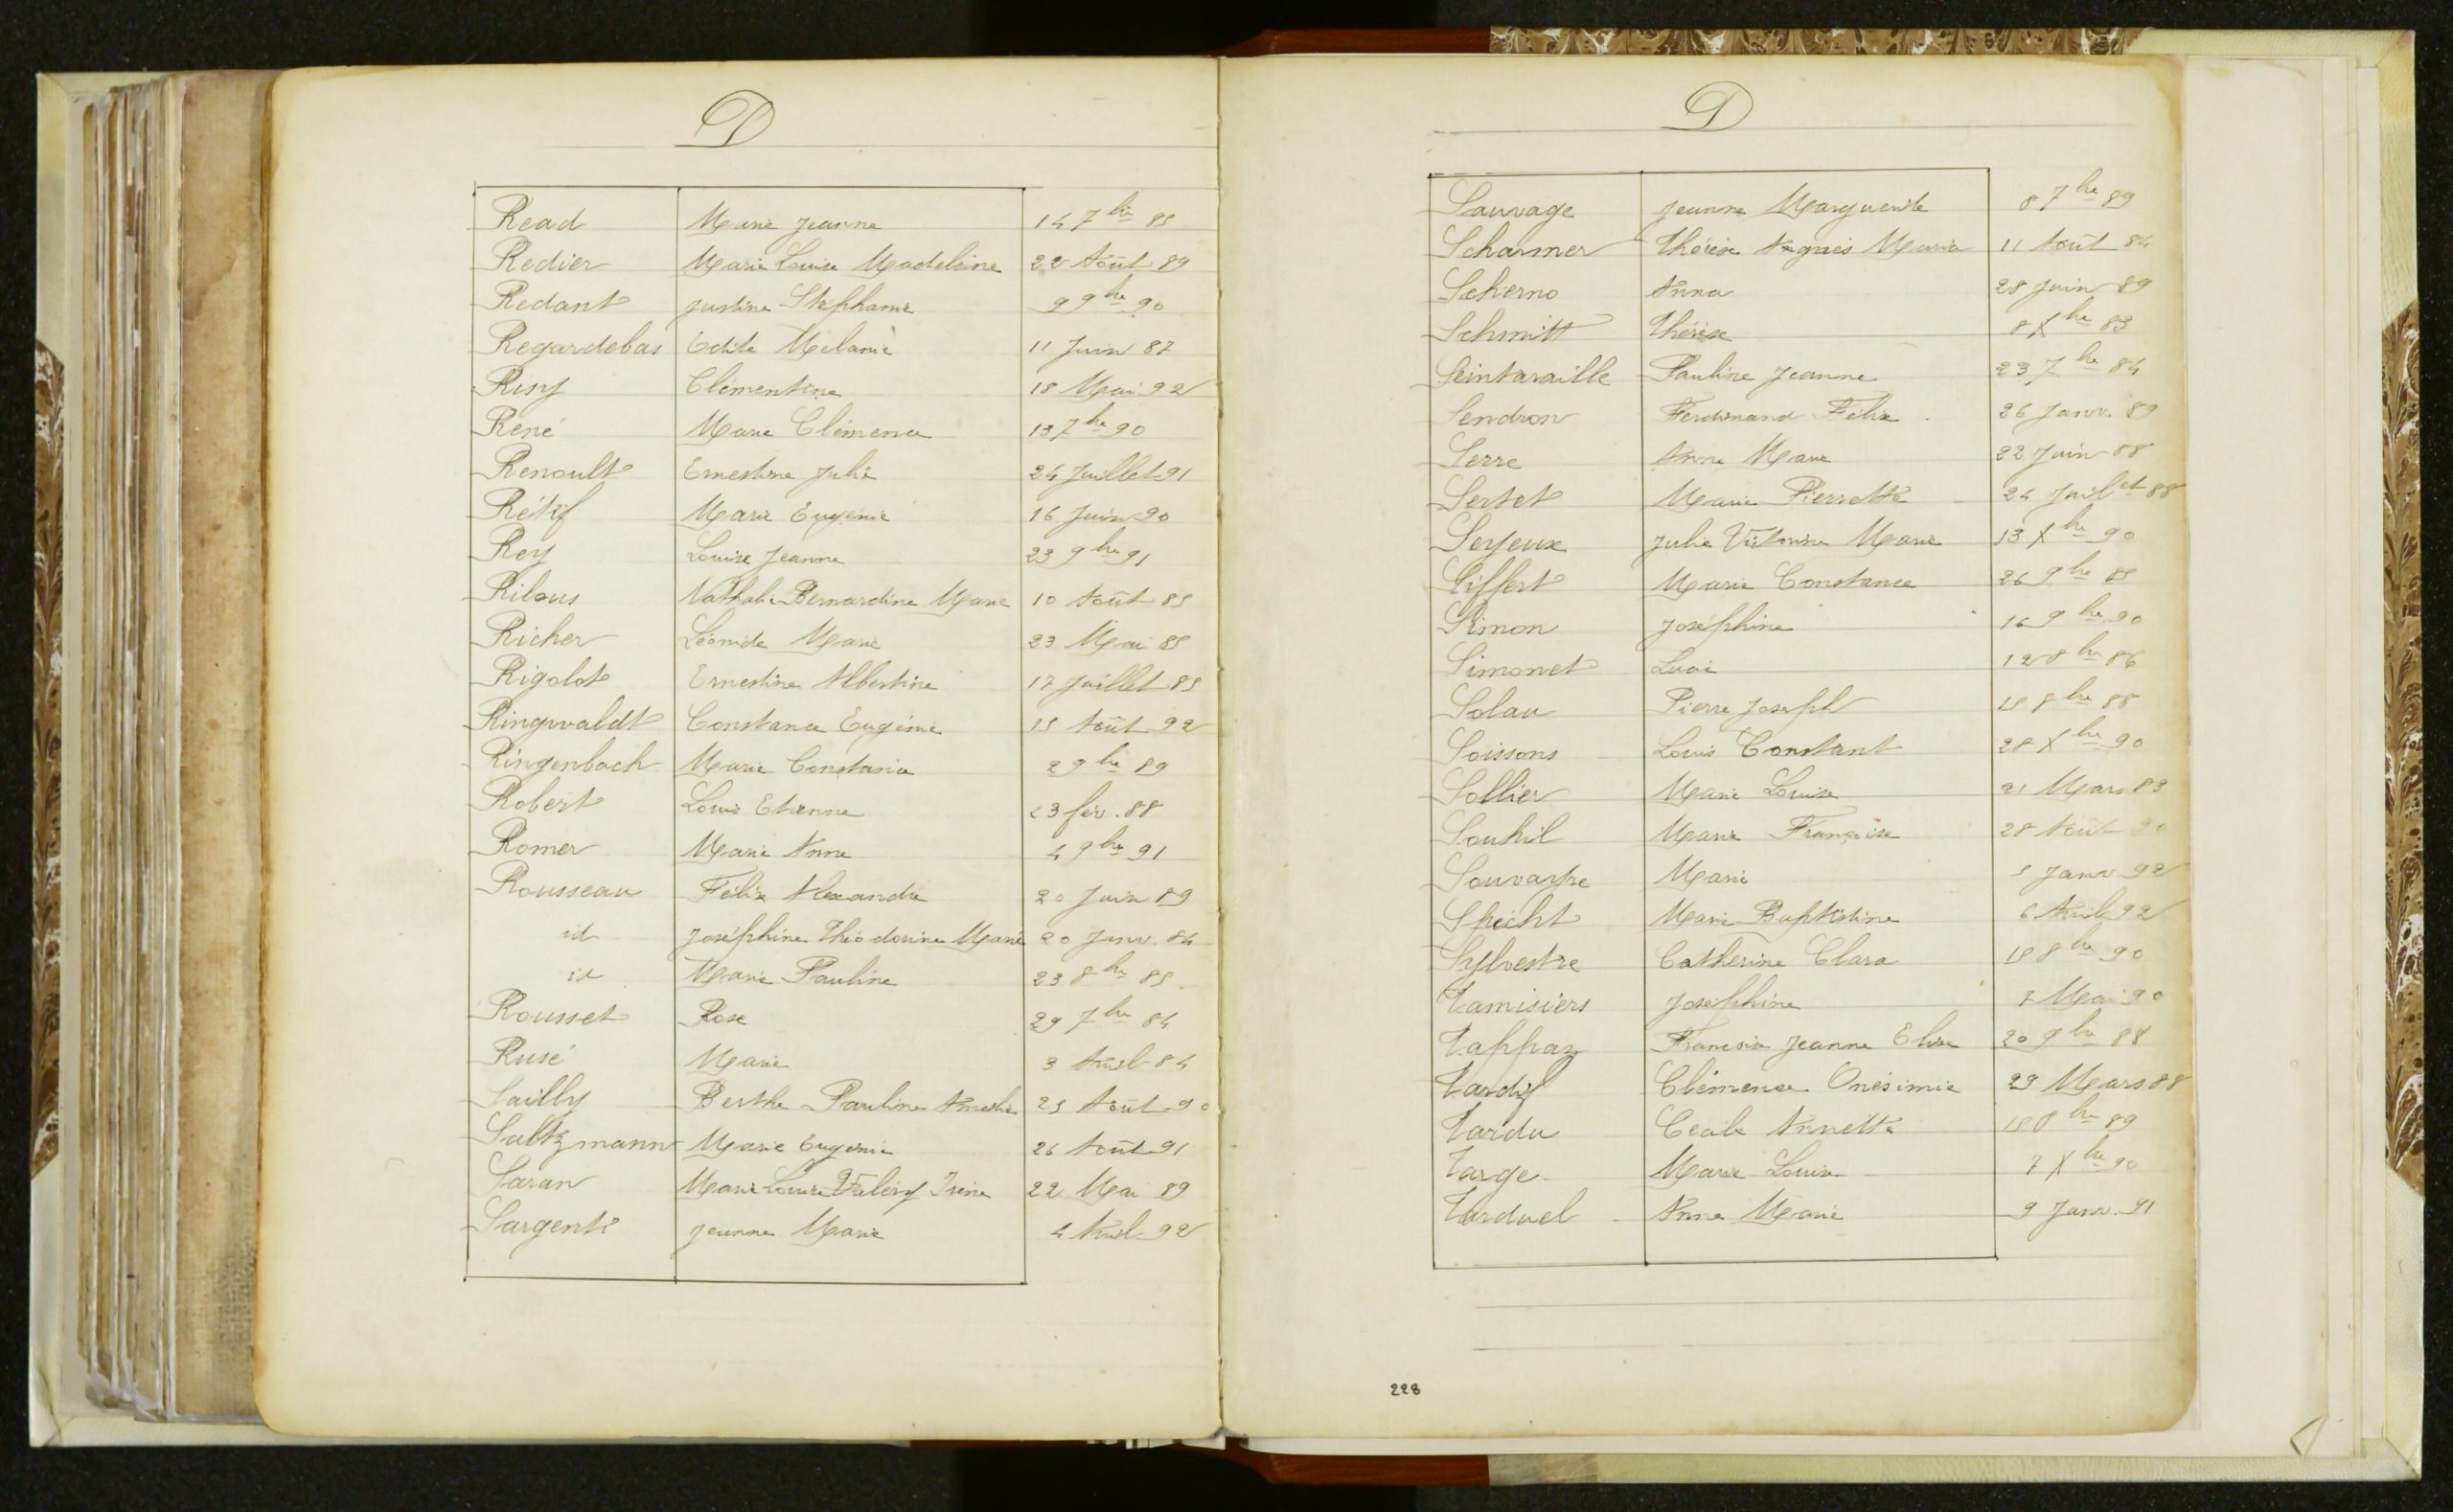 D
Read Marie Jeanne 14 7bre 85
Redier Marie Louise Madeleine 22 Août 89
Redant Justine Stéphanie 9 9bre 90
Regardebas Edile Mélanie 11 Juin 87
Risy Clémentine 18 Mai 92
René Marie Clémence 13 7bre 90
Renoult Ernestine Julie 24 Juillet 91
Rétif Marie Eugénie 16 Juin 90
Rey Louise Jeanne 23 9bre 91
Ribous Nathalie Bernardine Marie 10 Août 85
Richer Léonide Marie 23 Mai 85
Rigolot Ernestine Albertine 17 Juillet 85
Ringwaldt Constance Eugénie 15 Août 92
Ringenbach Marie Constance 2 9bre 89
Robert Louis Etienne 23 fév. 88
Romer Marie Anna 4 9bre 91
Rousseau Félix Alexandre 20 Juin 89
id Joséphine Théodorine Marie 20 Janv. 84
id Marie Pauline 23 8bre 85
Rousset Rose 29 7bre 84
Rusé Marie 3 Avril 84
Sailly Berthe Pauline 25 Août 90
Saltzmann Marie Eugénie 26 Août 91
Saran Marie Louise Valéry Irène 22 Mai 89
Sargenti Jeanne Marie 4 Avril 92
D
Sauvage Jeanne Marguerite 8 7bre 89
Scharmer Thérèse Agnès Maria 11 Août 84
Schierno Anna 28 Juin 89
Schmitt Thérèse 8 Xbre 83
Seintaraille Pauline Jeanne 23 7bre 84
Sendron Ferdinand Félix 26 Janv. 89
Serre Anne Marie 22 Juin 88
Sertet Marie Pierrette 24 Juillet 88
Seyeux Julie Victorine Marie 13 Xbre 90
Siffert Marie Constance 26 9bre 85
Simon Joséphine 16 9bre 90
Simonet Lucie 12 8bre 86
Solau Pierre Joseph 15 8bre 88
Soissons Louis Constant 28 Xbre 90
Sollier Marie Louise 21 Mars 83
Souhil Marie Françoise 28 Août 90
Souvarpe Marie 5 Janv 92
Specht Marie Baptistine 6 Avril 92
Sylvestre Catherine Clara 18 8bre 90
Tamisiers Joséphine 7 Mai 90
Tappaz Francoise Jeanne Elise 20 9bre 88
Tardif Clémence Onésimie 29 Mars 88
Tardu Cécile Annette 15 8bre 89
Targe Marie Louise 7 Xbre 90
Tarduel Anne Marie 9 Janv. 91
228